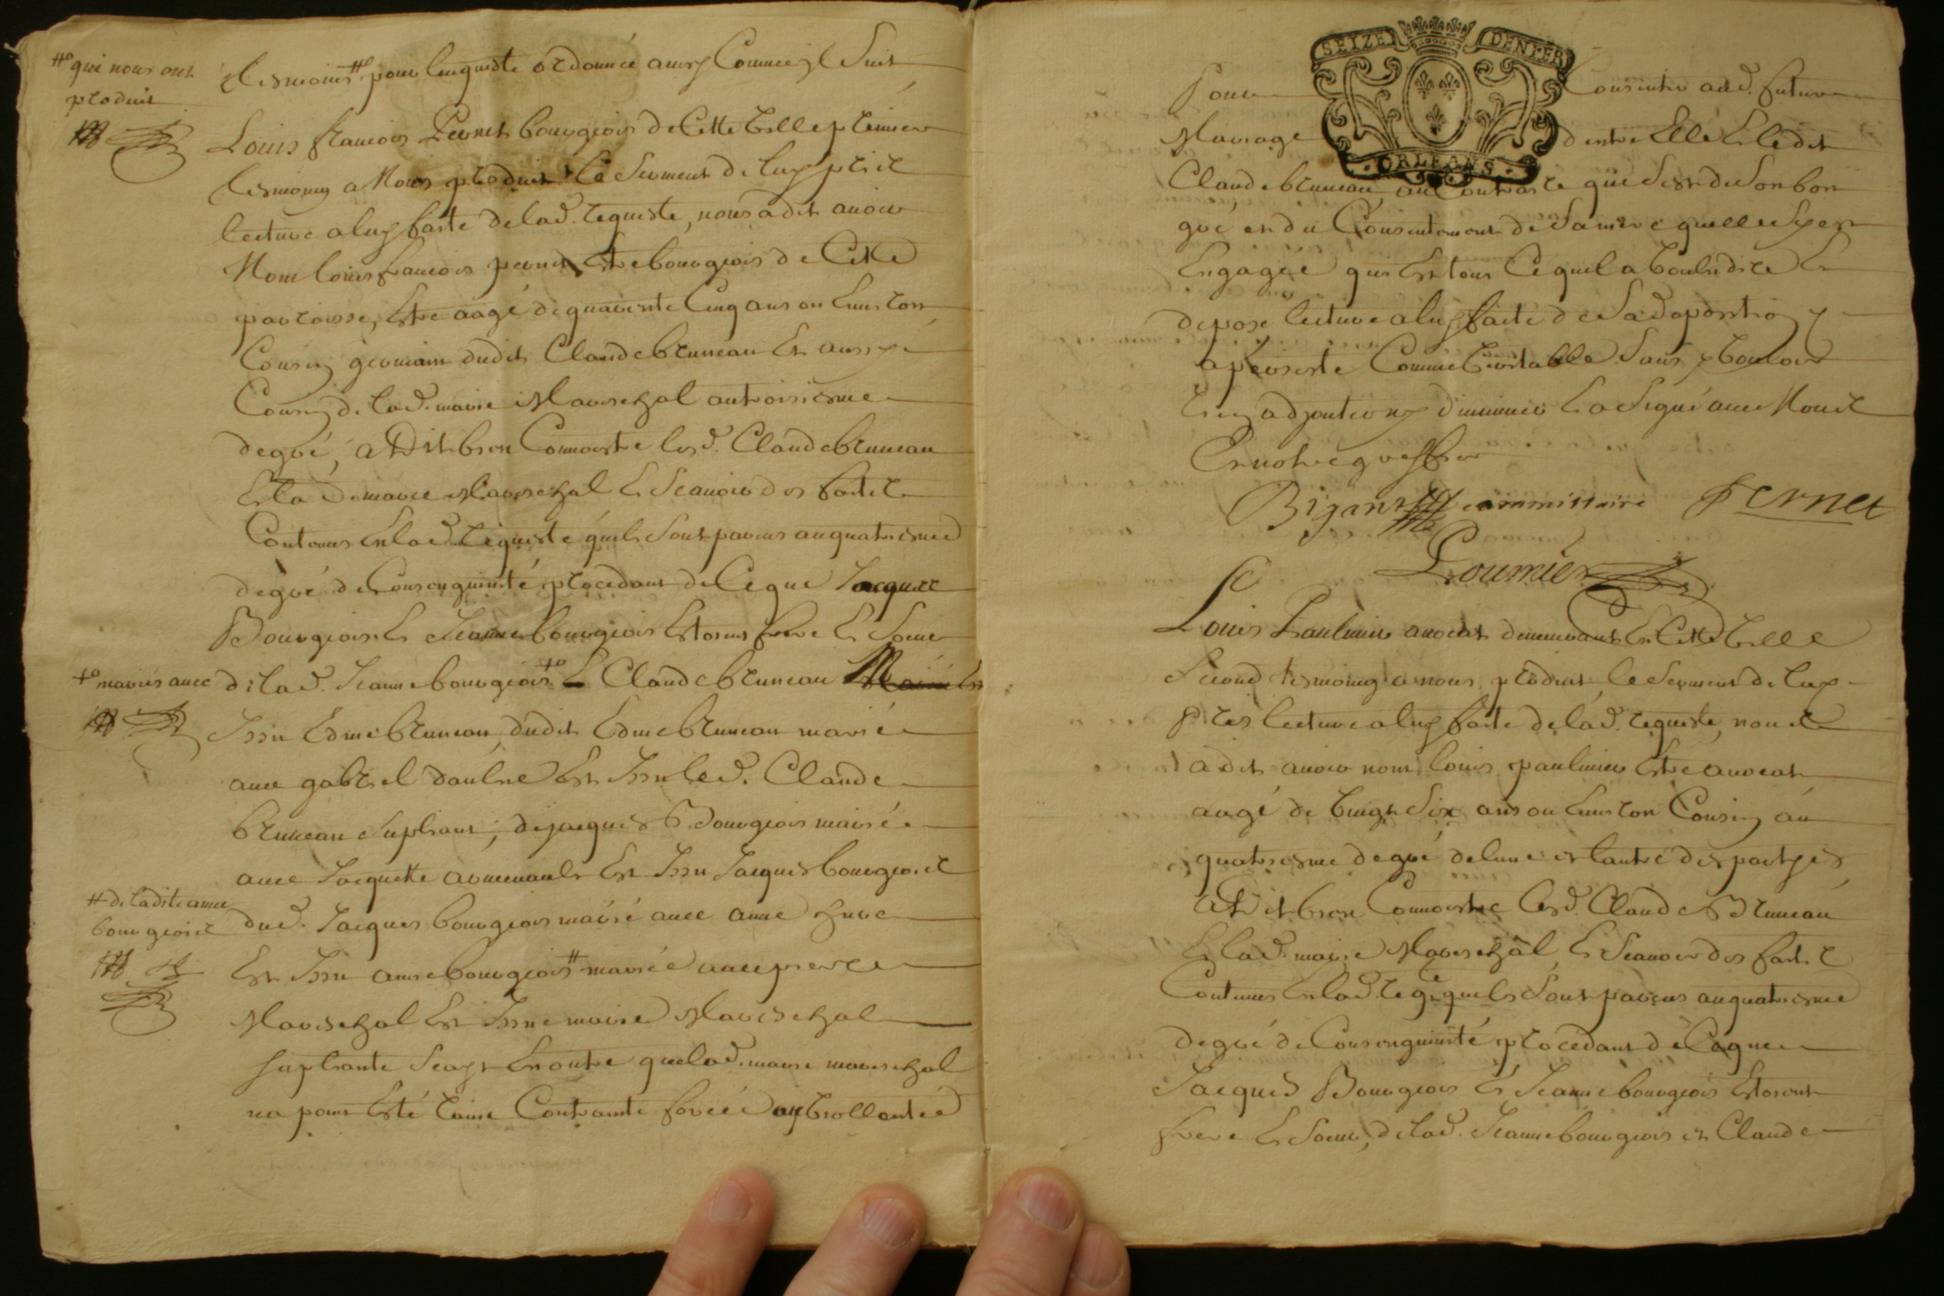 #o qui nous ont
produit
tesmoins #o pour lenqueste ordonnée ainsy Comme jl Suit
Louis francois Pernet bourgeois de Cette Ville premier
tesmoing a Nous produit Le Serment de luy pris
lecture a luy faite de lad. requeste, nous a dit auoir
Nom louis francois pernet Estre bourgeois de Cette
parroisse, Estre aagé de quarente Cinq ans ou Enuiron
Cousin germain dudit Claude bruneau Et aussy
Cousin de lad. marie Mareschal au troisiesme
degré, a Dit bien Connoistre lesd. Claude bruneau
Et lad marie Mareschal Et Scauoir des faits
Contenus En lad. requeste quils Sont parens au quatriesme
degré de Consenguinité procedant de Ceque Jacques
Bourgeois Et Jeanne bourgeois Estoient frere Et Soeur
+o mariés auec
de lad. Jeanne bourgeois +o Et Claude bruneau Est
Issu Edme bruneau, dudit Edme bruneau marié
auec gabriel daulne Est Issu led. Claude
bruneau Supliant, de jacques Bourgeois marié
auec Jacquette Est Issu Jacques bourgeois
# de ladite anne
bourgeois
dud. Jacques bourgeois marié auec anne
Est Issu anne bourgeois # mariée auec pierre
Mareschal Est Issue marie Mareschal
supliante Scayt Enoutre que lad. marie mareschal
na point Esté Contrainte forcée ny viollantée
SEIZE DENIERS
ORLEANS
Pour Consentir aud. futur
Mariage d'entre Elle Et ledit
Claude bruneau au Contraire que Sest de Son bon
gré et du Consentement de Sa mere quelle Sy est
Engagée qui Est tout Ce quil a Voulu dire Et
deposer lecture a luy faite de Sad. deposition y
a persisté Comme Veritable Sans y Vouloir
adjouter ny diminuer Et a Signé auec Nous
Et notre greffier
commissaire Pernet
Loumier
Louis Paulmier auocat demeurant En Cette Ville
Second tesmoing a nous produit, le Serment de luy
pris lecture a luy faite de lad. requeste, nous
a dit auoir nom louis paulmier Estre auocat
aagé de Vingt Six ans ou Enuiron Cousin au
quatriesme degré de lune et lautre des partyes
a Dit bien Connoistre lesd. Claude Bruneau
Et lad. marie Mareschal, Et Scauoir des faits
Contenus En lad. reqte quils Sont parens au quatriesme
degré de Consenguinité procedant de Ceque
Jacques Bourgeois Et Jeanne bourgeois Estoient
frere Et Soeur, de lad. Jeanne bourgeois et Claude